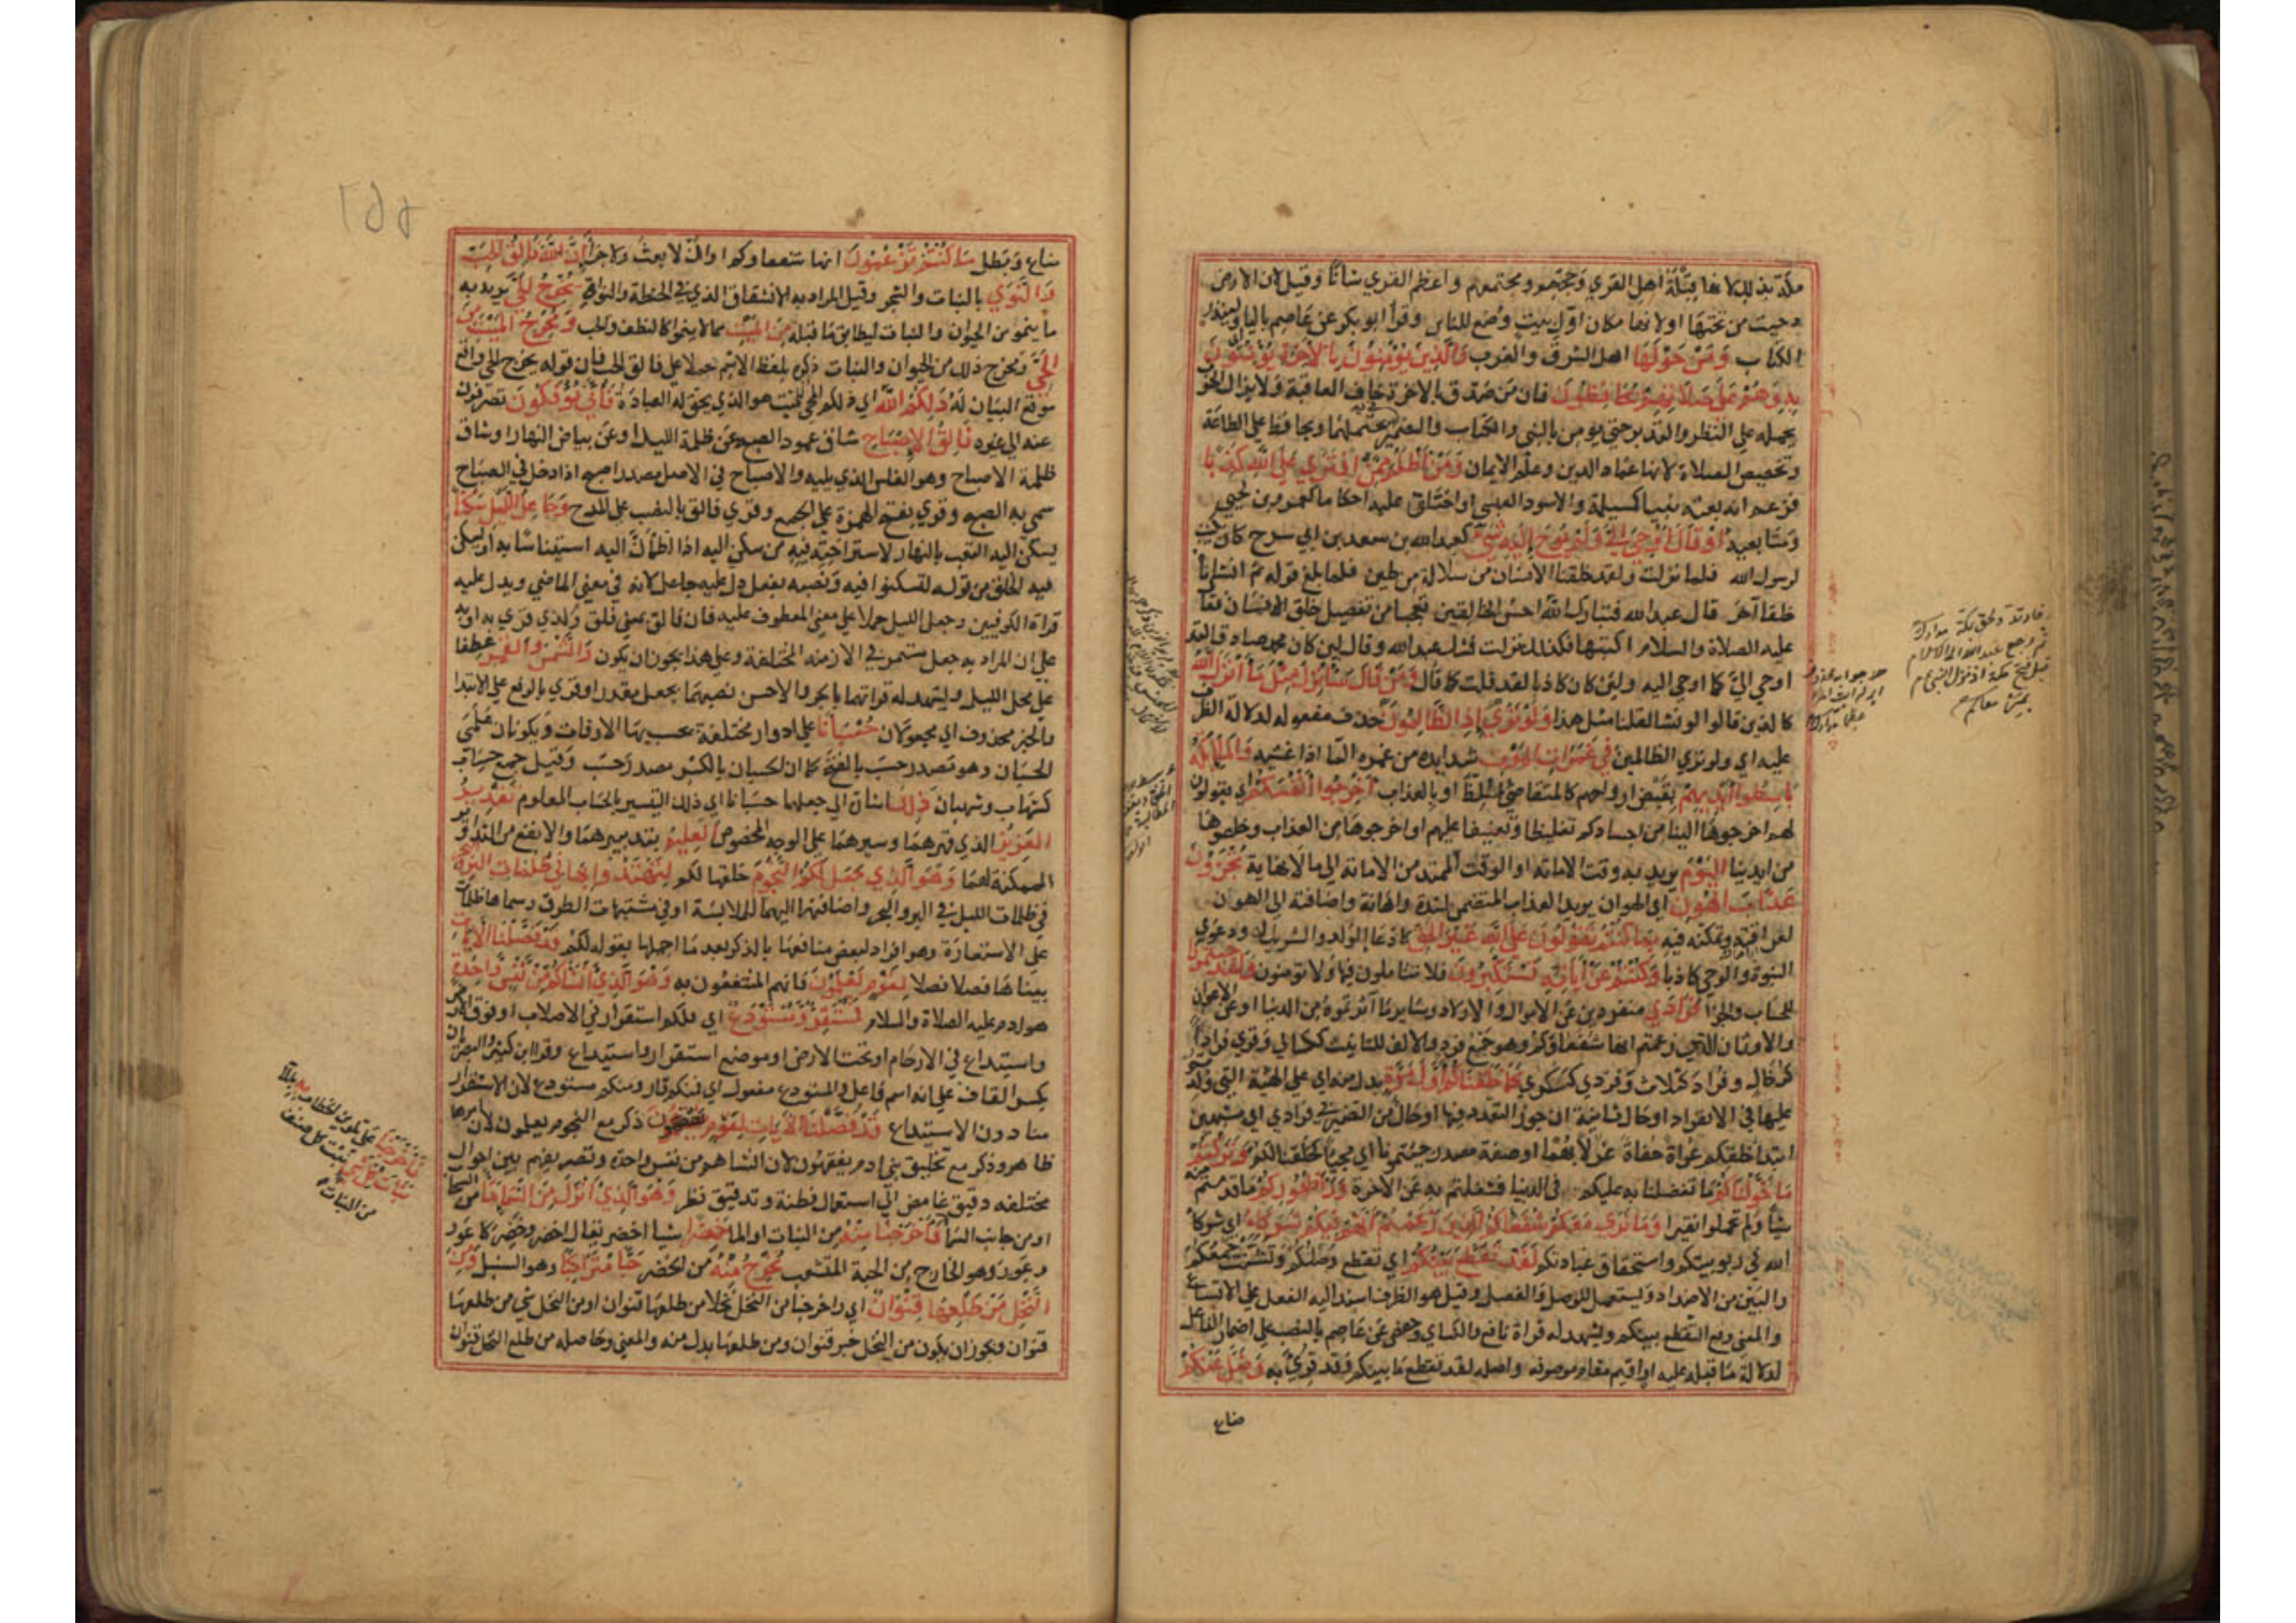 مكة بذلك لانها قبلة اهل القري وحجهم ومجتمعهم واعظم القري شانًا وقيل لان الارض
دحيت من تحتها او لانها مكان اول بيت وضع للناس وقرا ابو بكر عن عاصم باليا ولينذر
الكتاب وَمَنْ حَوْلَهَا اهل الشرق والغرب وَالَّذِينَ يُؤْمِنُونَ بِالآخِرَةِ يُؤْمِنُونَ
بِهِ وَهُمْ عَلَى صَلَاتِهِمْ يُحَافِظُونَ فان من صدق بالاخرة خاف العاقبة ولا يزال الخوف
يحمله علي النظر والتدبر حتي يومن بالنبي والكتاب والضمير يحتملهما ويحافظ علي الطاعة
وتخصيص الصلاة لانها عماد الدين وعلم الايمان وَمَنْ أَظْلَمُ مِمَّنْ افْتَرَي عَلَى اللَّهِ كَذِبًا
فزعم انه بعثه نبيا كمسيلمة والاسود العنسي او اختلق عليه احكاما كعمرو بن لحيي
ومتابعيه أَوْ قَالَ أُوحِيَ إِلَيَّ وَلَمْ يُوحَ إِلَيْهِ شَيْءٌ كعبد الله بن سعد بن ابي سرح كان يكتب
لرسول الله فلما نزلت ولقد خلقنا الانسان من سلالة من طين فلما بلغ قوله ثم انشاناه
خلقا آخر قال عبد الله فتبارك الله احسن الخالقين تعجبا من تفصيل خلق الانسان فقال
عليه الصلاة والسلام اكتبها فكذلك نزلت فشك عبد الله وقال لين كان محمد صادقا لقد
اوحي الي كما اوحي اليه ولين كان كاذبا لقد قلت كما قال وَمَنْ قَالَ سَأُنْزِلُ مِثْلَ مَا أَنْزَلَ اللَّهُ
كالذين قالوا لو نشا لقلنا مثل هذا وَلَوْ تَرَي إِذِ الظَّالِمُونَ حذف مفعوله لدلالة الظرف
عليه اي ولو تري الظالمين فِي غَمَرَاتِ الْمَوْتِ شدايده من غمره الما اذا غشيه وَالْمَلَائِكَةُ
بَاسِطُوا أَيْدِيهِمْ بقبض ارواحهم كالمتقاضي الملظ او بالعذاب أَخْرِجُوا أَنْفُسَكُمْ اي يقولون
لهم اخرجوها الينا من اجسادكم تغليظا وتعنيفا عليهم او اخرجوها من العذاب وخلصوها
من ايدينا الْيَوْمَ يريد به وقت الاماتة او الوقت الممتد من الاماتة الي ما لا نهاية تُجْزَوْنَ
عَذَابَ الْهُونِ اي الهوان يريد العذاب المتضمن لشدة واهانة واضافته الي الهون
لعراقته وتمكنه فيه بِمَا كُنْتُمْ تَقُولُونَ عَلَى اللَّهِ غَيْرَ الْحَقِّ كادعا الولد والشريك ودعوي
النبوة والوحي كاذبا وَكُنْتُمْ عَنْ آيَاتِهِ تَسْتَكْبِرُونَ فلا تتاملون فيها ولا تومنون وَلَقَدْ جِئْتُمُونَا
للحساب والجزا فُرَادَي منفردين عن الاموال والاولاد وساير ما آثرتموه من الدنيا او عن الاعوان
والاوثان التي زعمتم انها شفعاؤكم وهو جمع فرد والالف للتانيث ككسالي وقري فرادا
كرخال وفراد كثلاث وفردي كسكري كَمَا خَلَقْنَاكُمْ أَوَّلَ مَرَّةٍ بدل منه اي علي الهيئة التي ولدتم
عليها في الانفراد او حال ثانية ان جوز التعدد فيها او حال من الضمير في فرادي اي مشبهين
ابتدا خلقكم عراة حفاة غرلا بهما او صفة مصدر جئتمونا اي مجيا كخلقنا لكم وَتَرَكْتُمْ
مَا خَوَّلْنَاكُمْ ما تفضلنا به عليكم في الدنيا فشغلتم به عن الاخرة وَرَاءَ ظُهُورِكُمْ ما قدمتم منه
شيأ ولم تحملوا نقيرا وَمَا نَرَي مَعَكُمْ شُفَعَاءَكُمُ الَّذِينَ زَعَمْتُمْ أَنَّهُمْ فِيكُمْ شُرَكَاءُ اي شركا
الله في ربوبيتكم واستحقاق عبادتكم لَقَدْ تَقَطَّعَ بَيْنَكُمْ اي تقطع وصلكم وتشتت جمعكم
والبين من الاضداد يستعمل للوصل والفصل وقيل هو الظرف اسند اليه الفعل علي الاتساع
والمعني وقع التقطع بينكم ويشهد له قراة نافع والكساي وحفص عن عاصم بالنصب علي اضمار الفاعل
لدلالة ما قبله عليه او اقيم مقام موصوفه واصله لقد تقطع ما بينكم وقد قري به وَضَلَّ عَنْكُمْ
ضاع
ضاع وبطل مَا كُنْتُمْ تَزْعُمُونَ انها شفعاوكم او ان لا بعث ولا جزا إِنَّ اللَّهَ فَالِقُ الْحَبِّ
وَالنَّوَي بالنبات والشجر وقيل المراد به الانشقاق الذي في الحنطة والنواة يُخْرِجُ الْحَيَّ يريد به
ما ينمو من الحيوان والنبات ليطابق ما قبله مِنَ الْمَيِّتِ مما لا ينمو كالنطف والحب وَمُخْرِجُ الْمَيِّتِ مِنَ
الْحَيِّ ومخرج ذلك من الحيوان والنبات ذكره بلفظ الاسم حملا علي فالق الحب فان قوله يخرج الحي واقع
موقع البيان له ذَلِكُمُ اللَّهُ اي ذلكم المحيي المميت هو الذي يحق له العبادة فَأَنَّي تُؤْفَكُونَ تصرفون
عنه الي غيره فَالِقُ الإِصْبَاحِ شاق عمود الصبح عن ظلمة الليل او عن بياض النهار او شاق
ظلمة الاصباح وهو الغلس الذي يليه والاصباح في الاصل مصدر اصبح اذا دخل في الصباح
سمي به الصبح وقري بفتح الهمزة علي الجمع وقري فالق بالنصب علي المدح وَجَاعِلُ اللَّيْلِ سَكَنًا
يسكن اليه التعب بالنهار لاستراحته فيه من سكن اليه اذا اطمأن اليه استيناسا به او يسكن
فيه الخلق من قوله لتسكنوا فيه ونصبه بفعل دل عليه جاعل لانه في معني الماضي ويدل عليه
قراة الكوفيين وجعل الليل حملا علي معني المعطوف عليه فان فالق بمعني فلق ولذلك قري به او به
علي ان المراد به جعل مستمر في الازمنه المختلفة وعلي هذا يجوز ان يكون وَالشَّمْسَ وَالْقَمَرَ عطفا
علي محل الليل ويشهد له قراتهما بالجر والاحسن نصبهما بجعل مقدرا وقري بالرفع علي الابتدا
والخبر محذوف اي مجعولان حُسْبَانًا علي ادوار مختلفة يحسب بهما الاوقات ويكونان علمي
الحسبان وهو مصدر حسب بالفتح كما ان الحسبان بالكسر مصدر حسب وقيل جمع حساب
كشهاب وشهبان ذَلِكَ اشارة الي جعلهما حسبانا اي ذلك التسيير بالحساب المعلوم تَقْدِيرُ
الْعَزِيزِ الذي قهرهما وسيرهما علي الوجه المخصوص الْعَلِيمِ بتدبيرهما والانفع من التداوير
الممكنة لهما وَهُوَ الَّذِي جَعَلَ لَكُمُ النُّجُومَ خلقها لكم لِتَهْتَدُوا بِهَا فِي ظُلُمَاتِ الْبَرِّ وَالْبَحْرِ
في ظلمات الليل في البر والبحر واضافتها اليهما للملابسة او في مشتبهات الطرق وسماها ظلمات
علي الاستعارة وهو افراد لبعض منافعها بالذكر بعد ما اجملها بقوله لكم قَدْ فَصَّلْنَا الآيَاتِ
بيناها فصلا فصلا لِقَوْمٍ يَعْلَمُونَ فانهم المنتفعون به وَهُوَ الَّذِي أَنْشَأَكُمْ مِنْ نَفْسٍ وَاحِدَةٍ
هو ادم عليه الصلاة والسلام فَمُسْتَقَرٌّ وَمُسْتَوْدَعٌ اي فلكم استقرار في الاصلاب او فوق الارض
واستيداع في الارحام او تحت الارض او موضع استقرار واستيداع وقرا ابن كثير والبصريان
بكسر القاف علي انه اسم فاعل والمستودع مفعول اي فمنكم قار ومنكم مستودع لان الاستقرار
منا دون الاستيداع قَدْ فَصَّلْنَا الآيَاتِ لِقَوْمٍ يَفْقَهُونَ ذكر مع النجوم يعلمون لان امرها
ظاهر وذكر مع تخليق بني ادم يفقهون لان انشاهم من نفس واحدة وتصريفهم بين احوال
مختلفه دقيق غامض الي استعمال فطنة وتدقيق نظر وَهُوَ الَّذِي أَنْزَلَ مِنَ السَّمَاءِ مَاءً من السحاب
او من جانب السما فَأَخْرَجْنَا مِنْهُ من النبات او الما خَضِرًا شيا اخضر يقال اخضر وخضر كاعور
وعور وهو الخارج من الحبة المتشعب نُخْرِجُ مِنْهُ من الخضر حَبًّا مُتَرَاكِبًا وهو السنبل وَمِنَ
النَّخْلِ مِنْ طَلْعِهَا قِنْوَانٌ اي واخرجنا من النخل نخلا من طلعها قنوان او من النخل شي من طلعها
قنوان ويجوز ان يكون من النخل خبر قنوان ومن طلعها بدل منه والمعني وحاصله من طلع النخل قنوان
فَأَخْرَجْنَا علي تلوين الخطاب به بالما
نَبَاتَ كُلِّ شَيْءٍ نبت كل صنف
من النبات